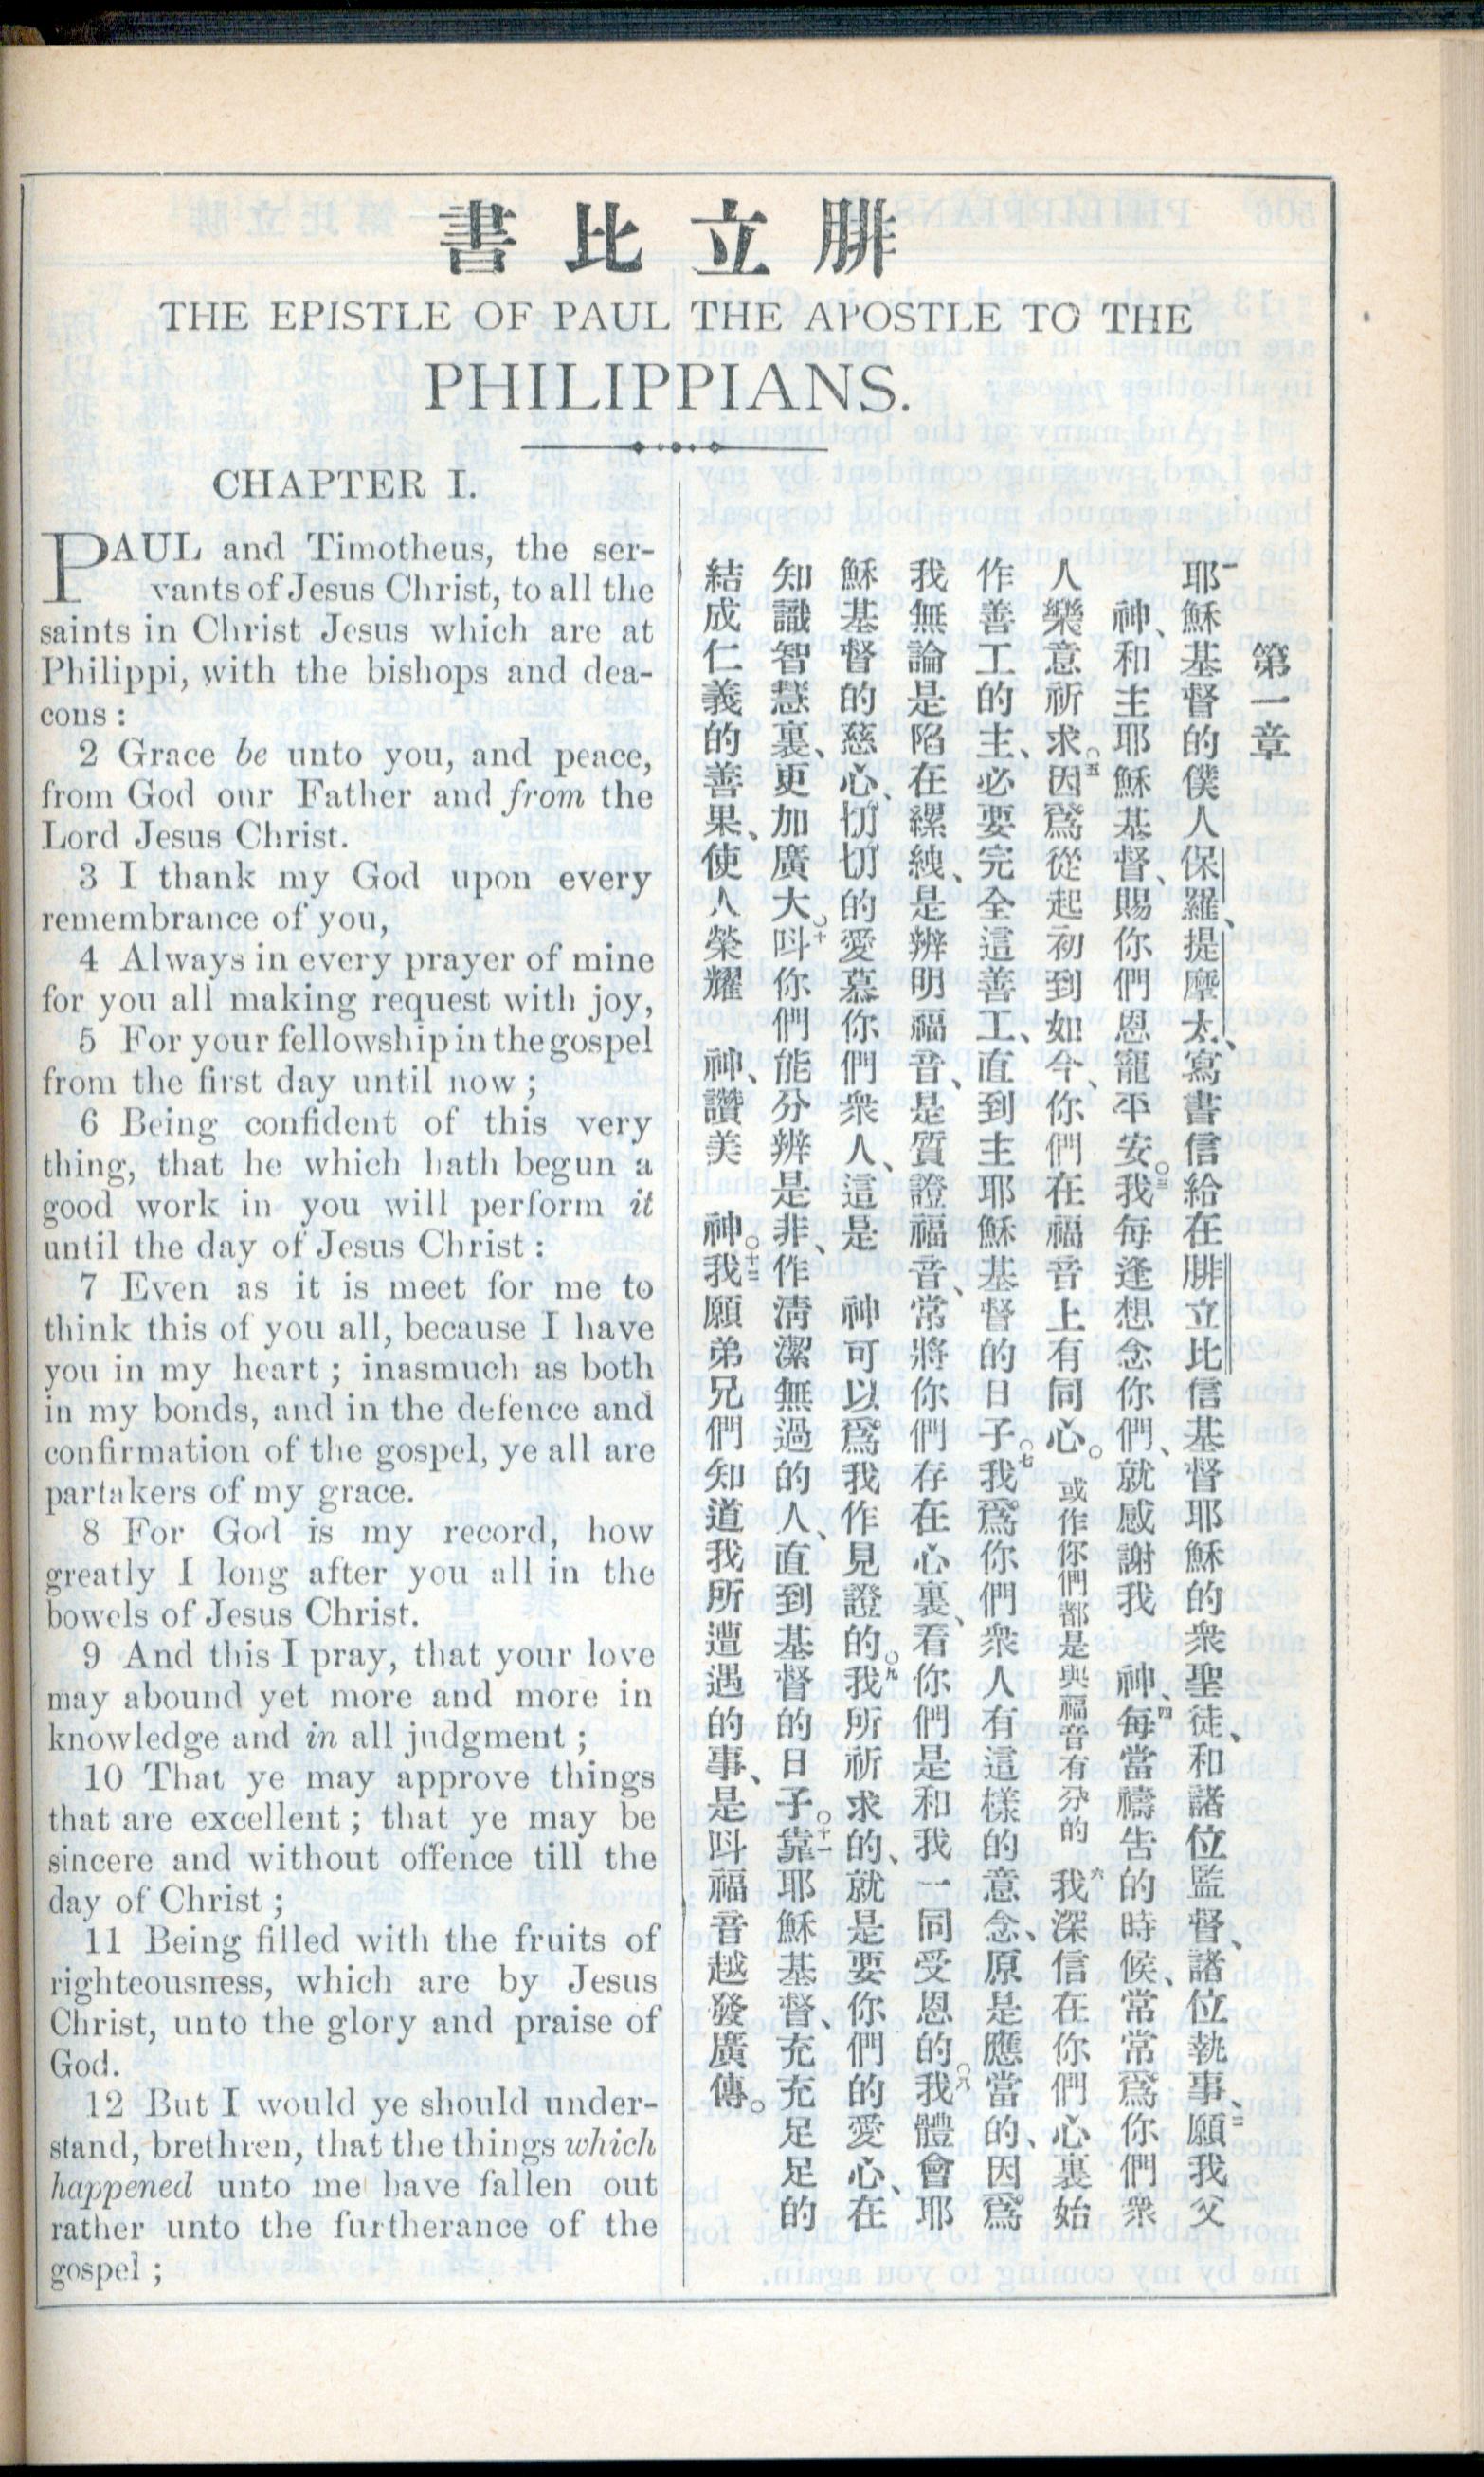 腓立比書
THE EPISTLE OF PAUL THE APOSTLE TO THE
PHILIPPIANS.
CHAPTER I.
PAUL and Timotheus, the ser-
vants of Jesus Christ, to all the
saints in Christ Jesus which are at
Philippi, with the bishops and dea-
cons:
2 Grace be unto you, and peace,
from God our Father and from the
Lord Jesus Christ.
3 I thank my God upon every
remembrance of you,
4 Always in every prayer of mine
for you all making request with joy,
5 For your fellowship in the gospel
from the first day until now;
6 Being confident of this very
thing, that he which hath begun a
good work in you will perform it
until the day of Jesus Christ:
7 Even as it is meet for me to
think this of you all, because I have
you in my heart; inasmuch as both
in my bonds, and in the defence and
confirmation of the gospel, ye all are
partakers of my grace.
8 For God is my record, how
greatly I long after you all in the
bowels of Jesus Christ.
9 And this I pray, that your love
may abound yet more and more in
knowledge and in all judgment;
10 That ye may approve things
that are excellent; that ye may be
sincere and without offence till the
day of Christ;
11 Being filled with the fruits of
righteousness, which are by Jesus
Christ, unto the glory and praise of
God.
12 But I would ye should under-
stand, brethren, that the things which
happened unto me have fallen out
rather unto the furtherance of the
gospel;
第一章
一耶穌基督的僕人保羅、提摩太、寫書信給在腓立比信基督耶穌的衆聖徒、和諸位監督、諸位執事、二願我父
神、和主耶穌基督、賜你們恩寵平安。三我每逢想念你們、就感謝我 神、四每當禱告的時候、常常爲你們衆
人樂意祈求。五因爲從起初到如今、你們在福音上有同心。或作你們都是與福音有分的 六我深信在你們心裏始
作善工的主、必要完全這善工、直到主耶穌基督的日子。七我爲你們衆人有這樣的意念、原是應當的、因爲
我無論是陷在縲絏、是辨明福音、是質證福音、常將你們存在心裏、看你們是和我一同受恩的。八我體會耶
穌基督的慈心、切切的愛慕你們衆人、這是 神可以爲我作見證的。九我所祈求的、就是要你們的愛心、在
知識智慧裏、更加廣大。十呌你們能分辨是非、作淸潔無過的人、直到基督的日子。十一靠耶穌基督、充充足足的
結成仁義的善果、使人榮耀 神、讚美 神。十二我願弟兄們知道我所遭遇的事、是呌福音越發廣傳。